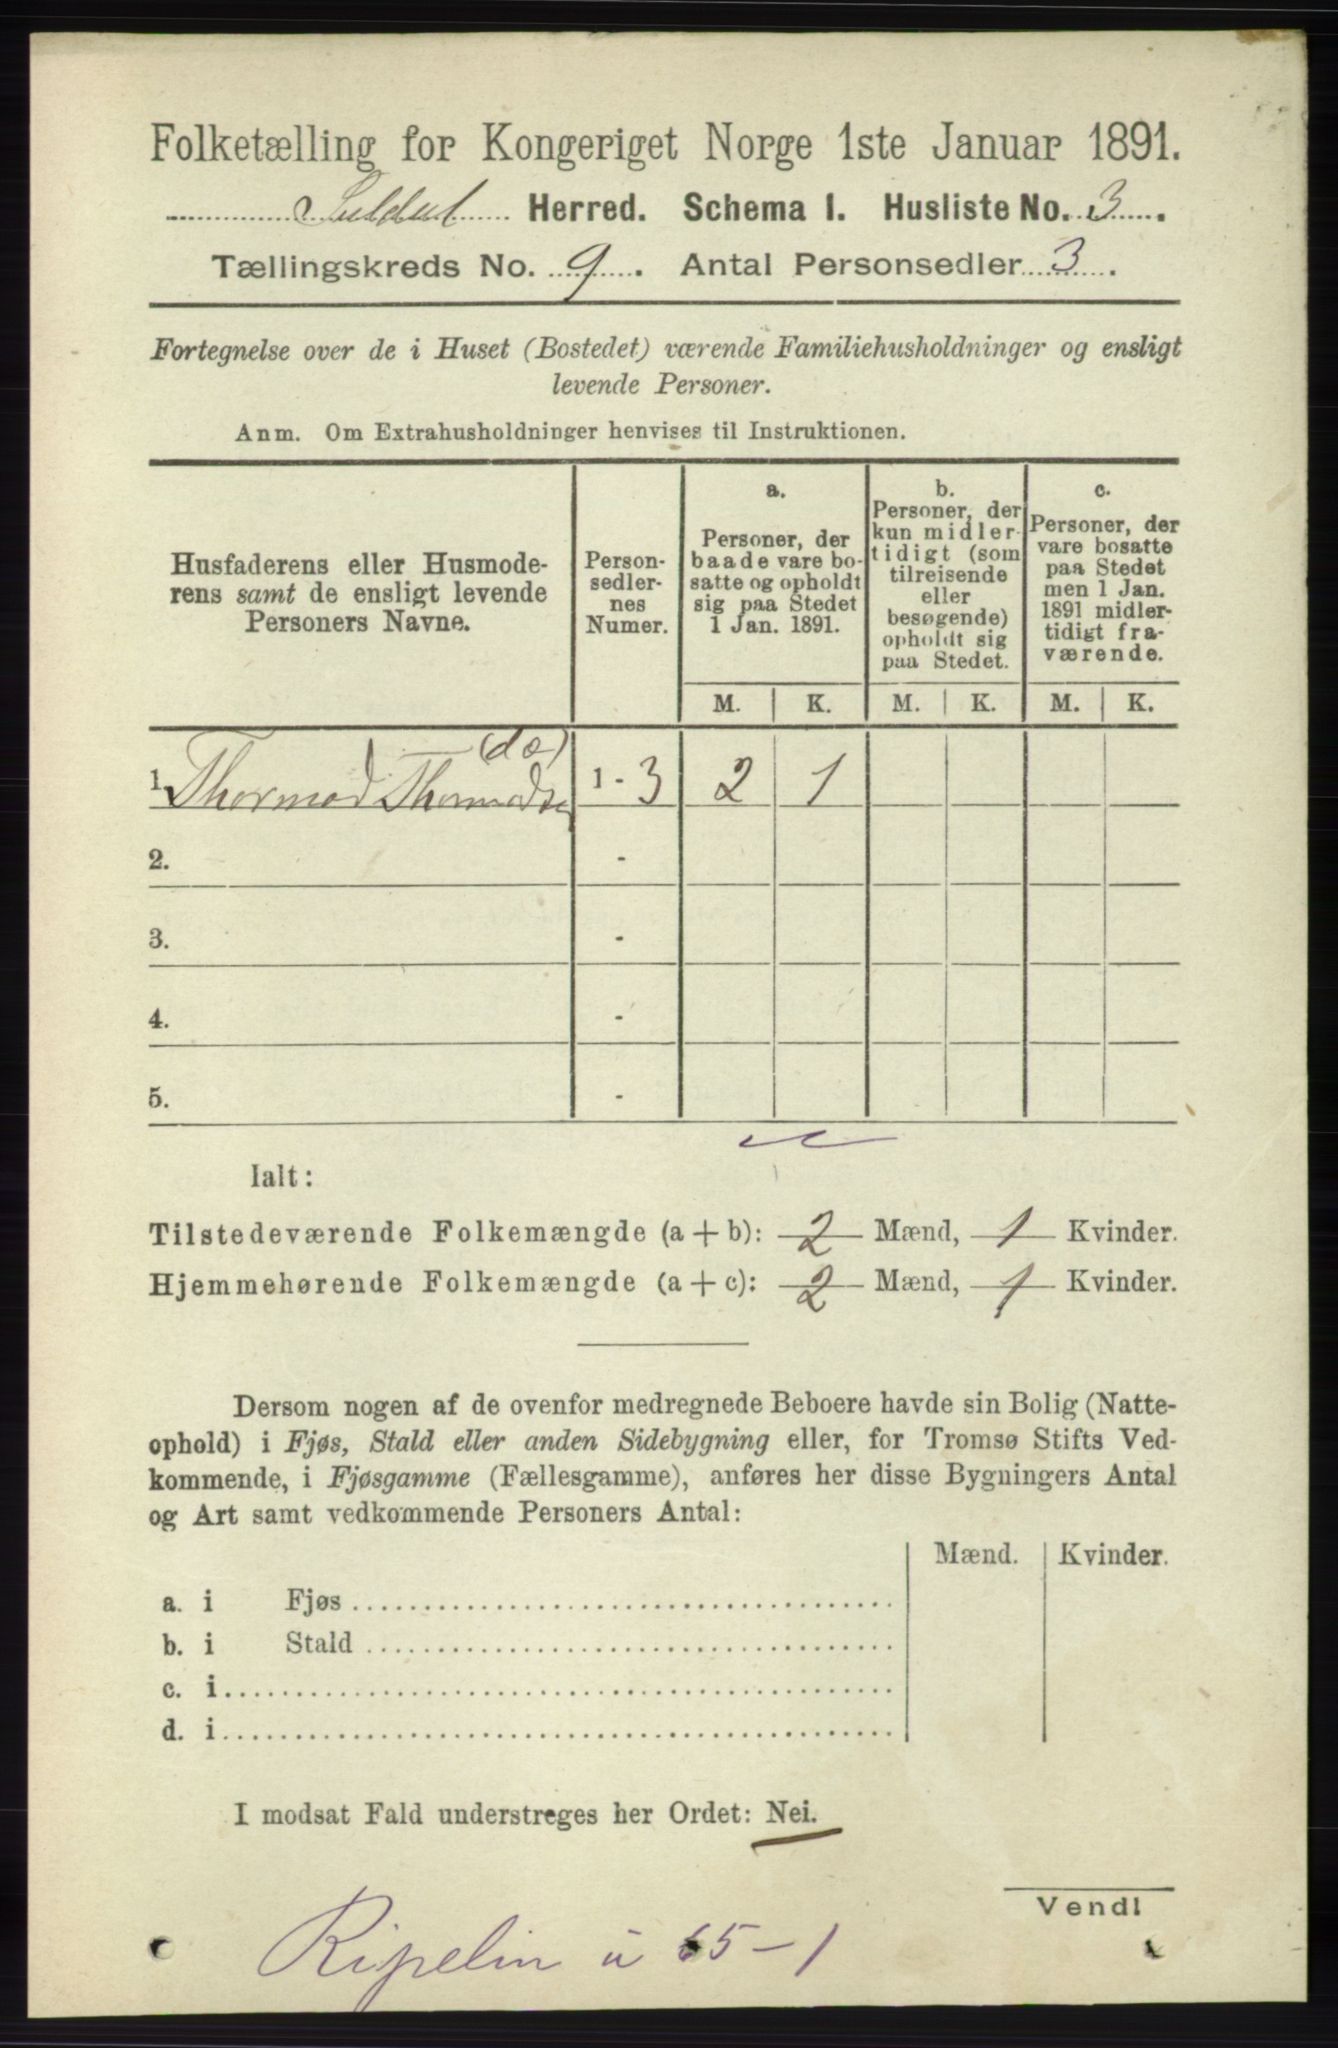 Folketælling for Kongeriget Norge 1ste Januar 1891.
Suldal Herred. Schema I. Husliste No. 3.
Tællingskreds No. 9. Antal Personsedler 3.
Fortegnelse over de i Huset (Bostedet) værende Familiehusholdninger og ensligt
levende Personer.
Anm. Om Extrahusholdninger henvises til Instruktionen.
Husfaderens eller Husmode-
rens samt de ensligt levende
Personers Navne.
Person-
sedler-
nes
Numer.
a.
Personer, der
baade vare bo-
satte og opholdt
sig paa Stedet
1 Jan. 1891.
b.
Personer, der
kun midler-
tidigt (som
tilreisende
eller
besøgende)
opholdt sig
paa Stedet.
c.
Personer, der
vare bosatte
paa Stedet
men 1 Jan.
1891 midler-
tidigt fra-
værende.
M. K. M. K. M. K.
(do)
1. Thormod Thormodsen 1 - 3 2 1
2. -
3. -
4. -
5. -
Ialt:
Tilstedeværende Folkemængde (a + b): 2 Mænd, 1 Kvinder.
Hjemmehørende Folkemængde (a + c): 2 Mænd, 1 Kvinder.
Dersom nogen af de ovenfor medregnede Beboere havde sin Bolig (Natte-
ophold) i Fjøs, Stald eller anden Sidebygning eller, for Tromsø Stifts Ved-
kommende, i Fjøsgamme (Fællesgamme), anføres her disse Bygningers Antal
og Art samt vedkommende Personers Antal:
Mænd. Kvinder.
a. i Fjøs
b. i Stald
c. i
d. i
I modsat Fald understreges her Ordet: Nei.
Vend!
Ripelin u 65-1